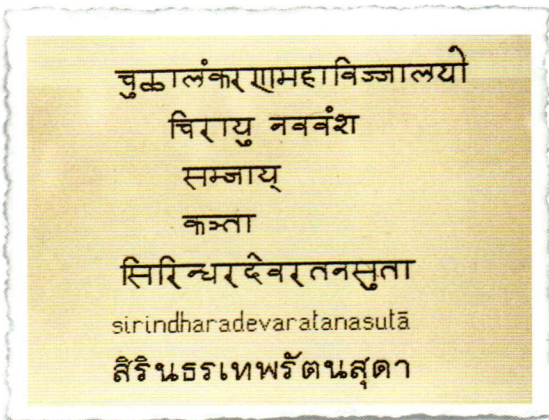 चुळालंकरणमहाविज्जालयो
चिरायु नववंश
सम्जाय्
सिरिन्धरदेवरतनसुता
sirindharadevaratanasutā
สิรินธรเทพรัตนสุดา